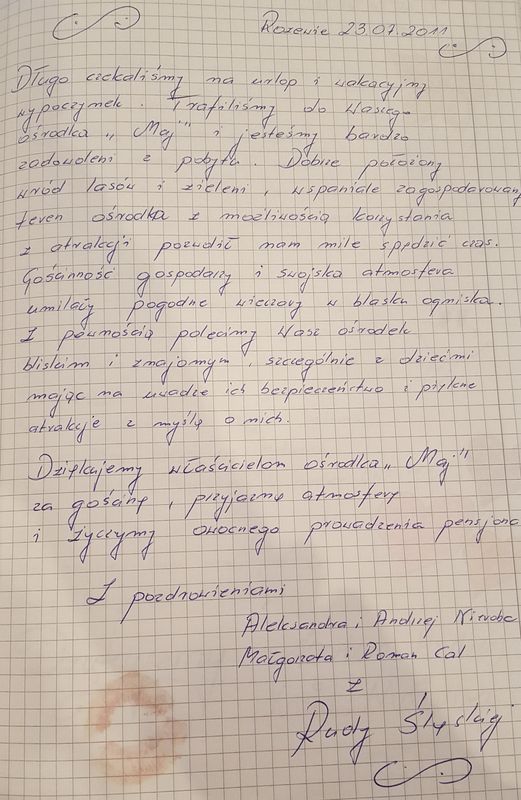 Rozewie 23.07.2011
Długo czekaliśmy na urlop i wakacyjny
wypoczynek. Trafiliśmy do Waszego
ośrodka „Maj" i jesteśmy bardzo
zadowoleni z pobytu. Dobrze położony
wród lasów i zieleni, wspaniale zagospodarowany
teren ośrodka z możliwością korzystania
z atrakcji pozwolił nam mile spędzić czas.
Gościnność gospodarzy i swojska atmosfera
umilały pogodne wieczory w blasku ogniska.
Z pewnością polecimy Wasz ośrodek
bliskim i znajomym, szczególnie z dziećmi
mając na uwadze ich bezpieczeństwo i piękne
atrakcje z myślą o nich.
Dziękujemy właścicielom ośrodka „Maj"
za gościnę, przyjazną atmosferę
i życzymy owocnego prowadzenia pensjona
Z pozdrowieniami
Aleksandra i Andrzej
Małgorzata i Roman Cal
z
Rudy Śląskiej